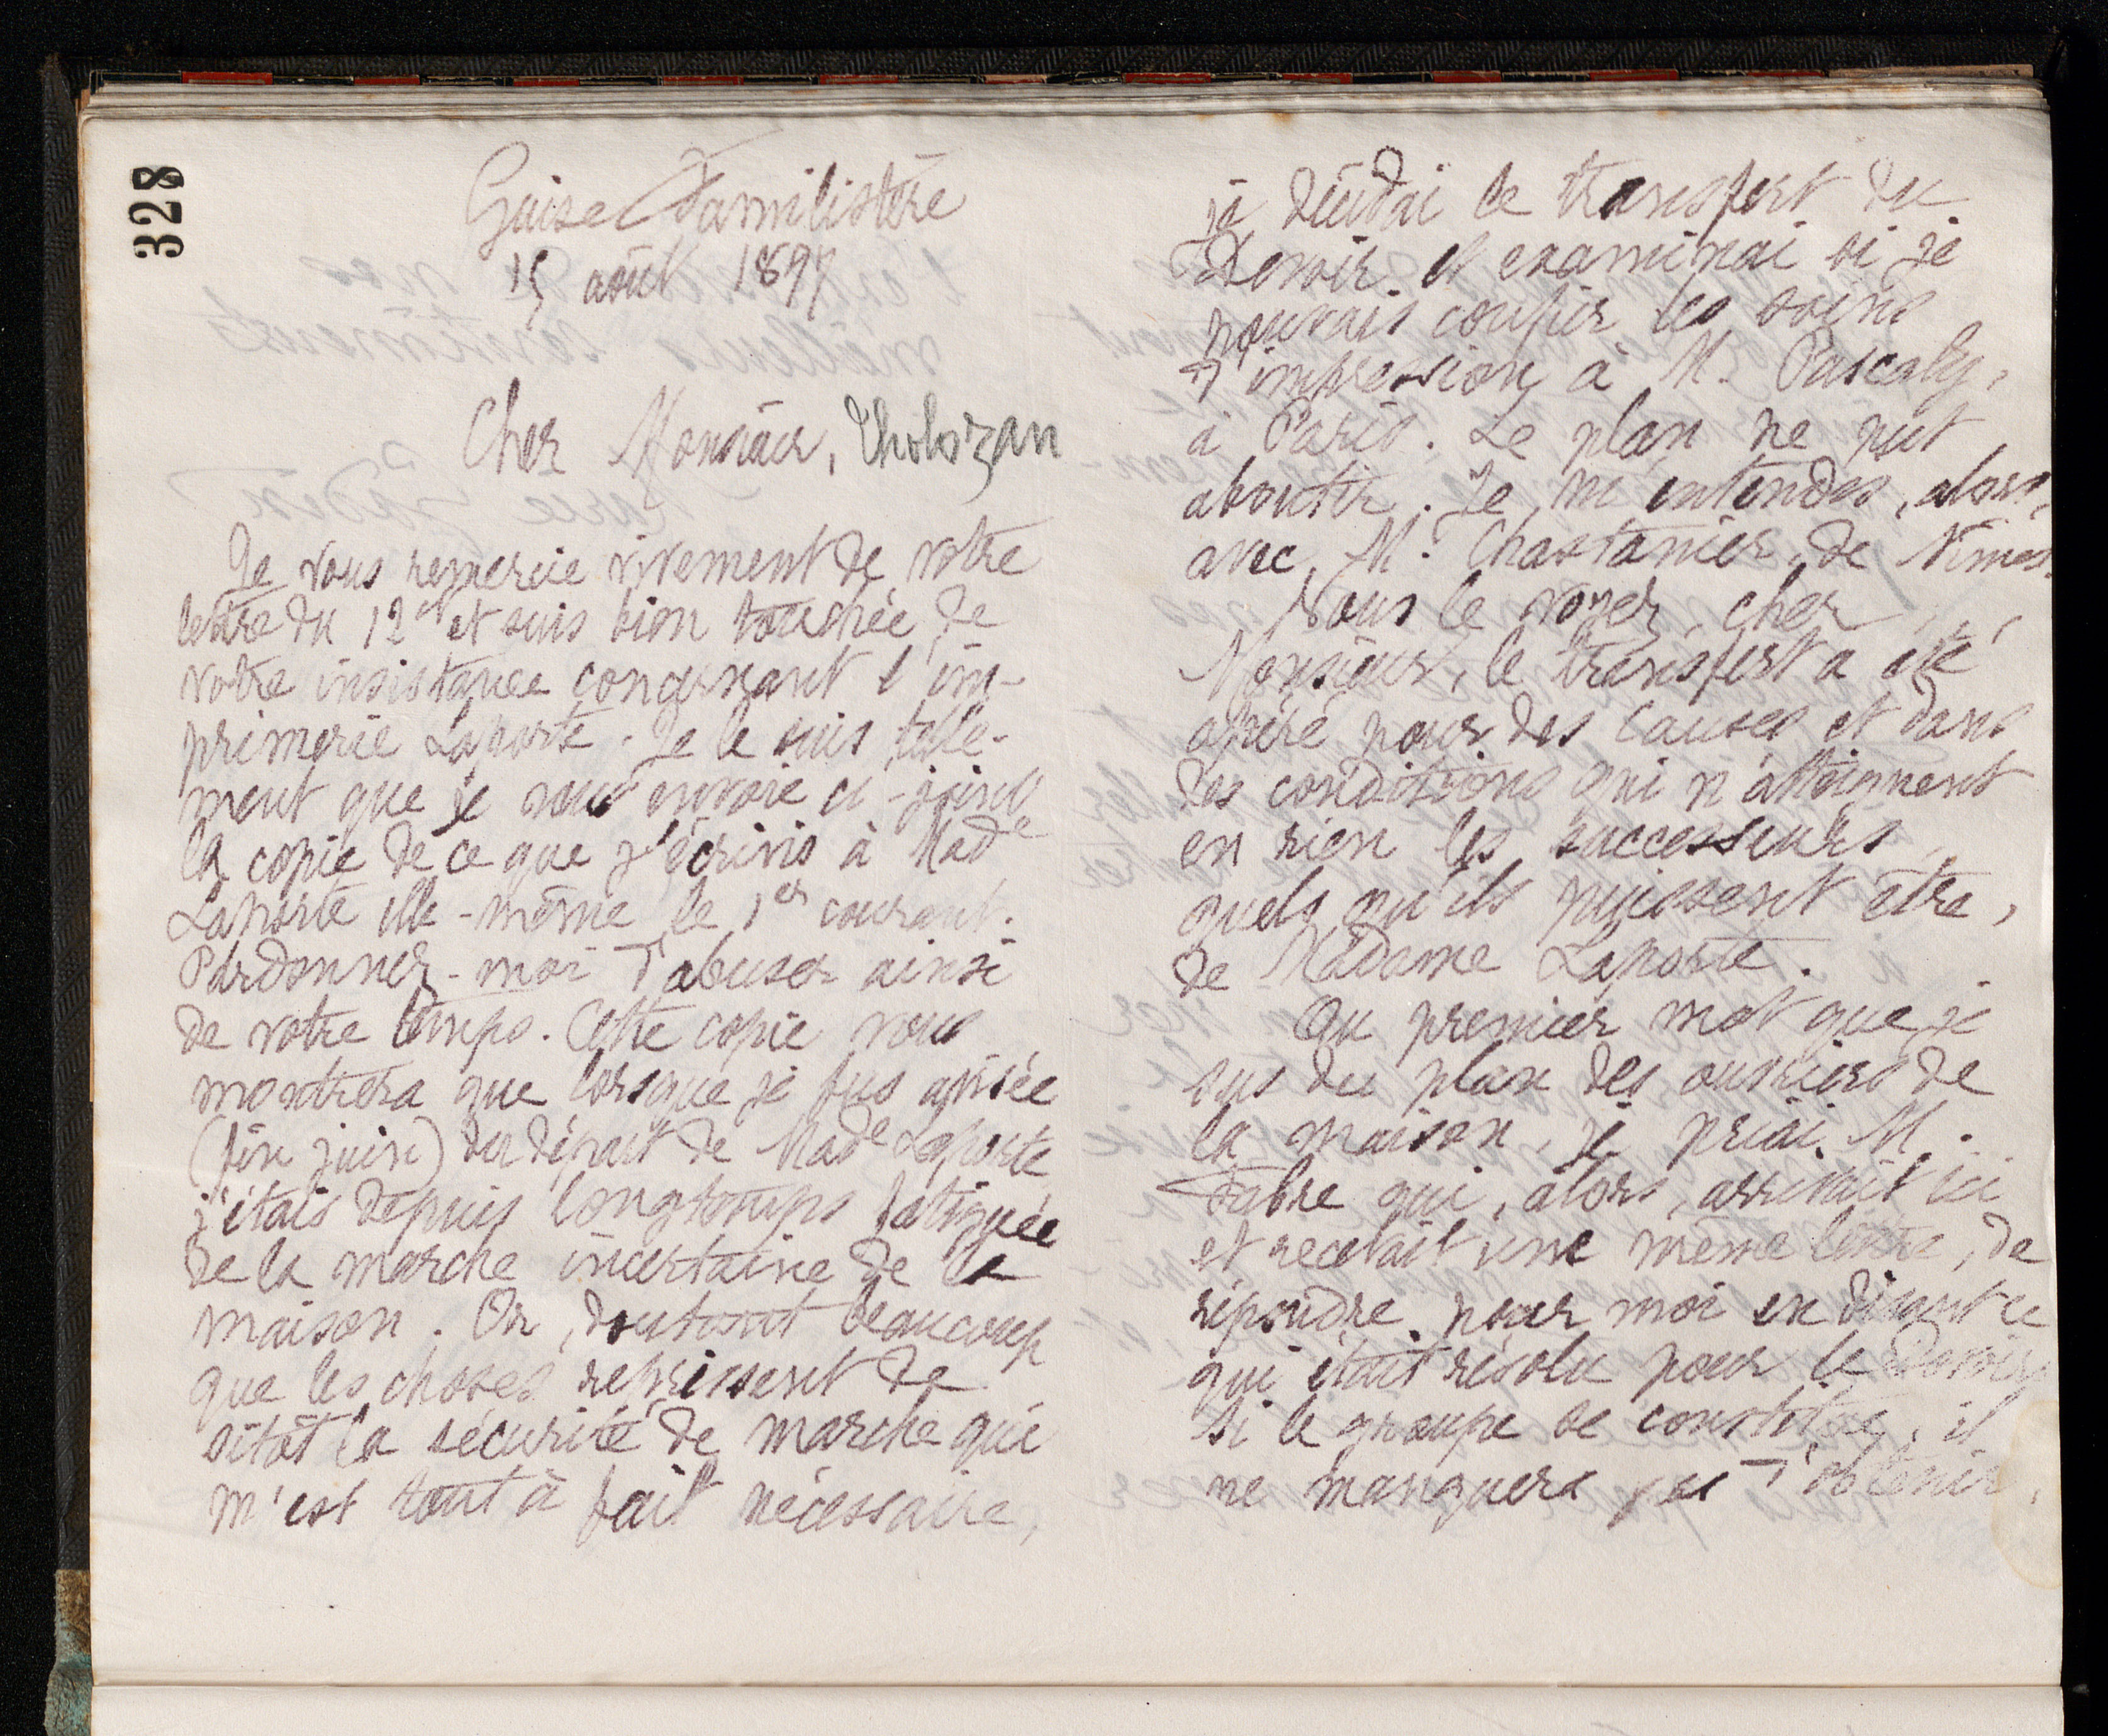 328
Guise Familistère
15 août 1897
Cher Monsieur, Tholozan
Je vous remercie vivement de votre
lettre du 12 et suis bien touchée de
votre insistance concernant l'im-
primerie Laporte. Je le suis telle-
ment que je vous envoie ci-joint
la copie de ce que j'écrivis à Made
Laporte elle-même le 1er courant.
Pardonnez-moi d'abuser ainsi
de votre temps. Cette copie vous
montrera que lorsque je fus avisée
(fin juin) du départ de Made Laporte
j'étais depuis longtemps fatiguée
de la marche incertaine de la
maison. Or, doutant beaucoup
que les choses reprissent de
sitôt la sécurité de marche qui
m'est tout à fait nécessaire,
je décidai le transfert du
Devoir et examinai si je
pouvais confier les soins
d'impression à M. Pascaly,
à Paris. Le plan ne put
aboutir. Je m'entendis, alors,
avec M. Chastanier, de Nimes.
Vous le voyez, cher
Monsieur, le transfert a été
opéré pour des causes et dans
des conditions qui n'atteignent
en rien les successeurs
quels qu'ils puissent être,
de Madame Laporte.
Au premier mot que je
sus du plan des ouvriers de
la maison, je priai M.
Fabre qui, alors, arrivait ici
et recevait une même lettre, de
répondre pour moi en disant ce
qui était résolu pour le Devoir
Si le groupe se constitue, il
ne manquera pas d'obtenir,